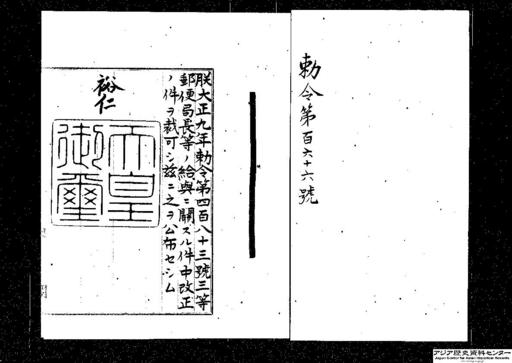 勅令第百六十六號
朕大正九年勅令第四百八十三號三等
郵便局長等ノ給與ニ關スル件中改正
ノ件ヲ裁可シ茲ニ之ヲ公布セシム
裕仁
天皇
御璽
アジア歴史資料センター
Japan Center for Asian Historical Records